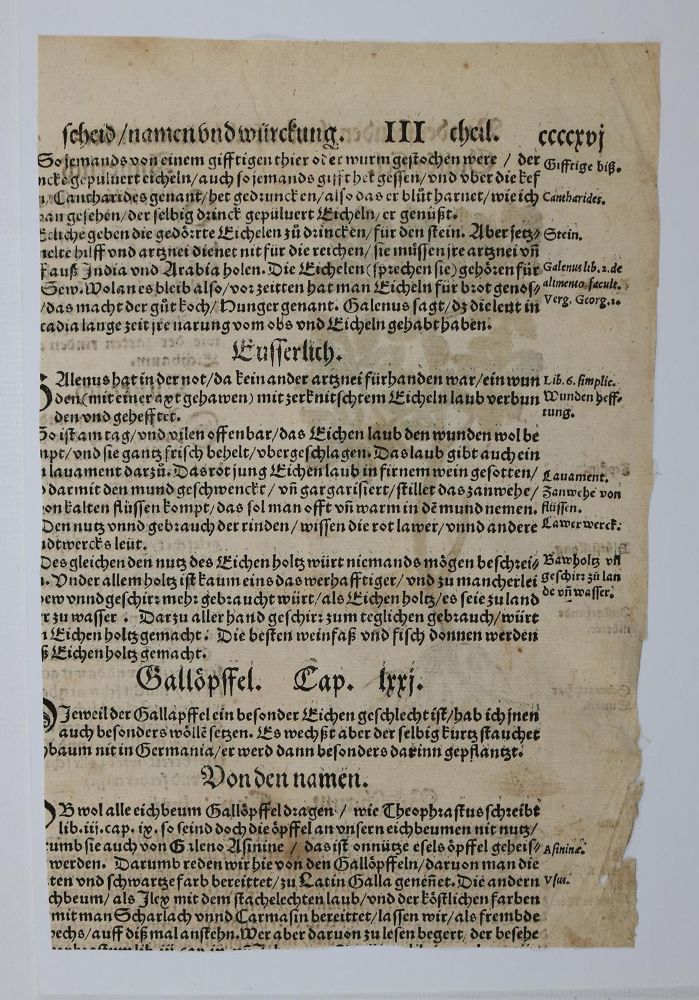 scheid/namen vnd würckung. III theil. ccccxvj
So jemands von einem gifftigen thier oder wurm gestochen were / der
gepuluert eicheln/auch so jemands gifft het gessen/vnd vber die kef
Cantharides genant/het gedruncken/also das er blůt harnet/wie ich
gesehen/der selbig drinck gepuluert Eicheln/er genüßt.
Etliche geben die gedörrte Eichelen zů drincken/für den stein. Aber jetz⸗
hilff vnd artznei dienet nit für die reichen/sie müssen jre artznei vñ
auß India vnd Arabia holen. Die Eichelen (sprechen sie) gehören für
Sew. Wolan es bleib also/vor zeitten hat man Eicheln für brot genos⸗
/das macht der gůt koch/Hunger genant. Galenus sagt/dz die leut in
cadia lange zeit jre narung vom obs vnd Eicheln gehabt haben.
Gifftige biß.
Cantharides.
Stein.
Galenus lib. 2. de
alimento. facult.
Verg. Georg. 1.
Eusserlich.
Galenus hat in der not/da kein ander artznei fürhanden war/ein wun
den (mit einer axt gehawen) mit zerknitschtem Eicheln laub verbun
den vnd gehefftet.
So ist am tag/vnd vilen offenbar/das Eichen laub den wunden wol be
mpt/vnd sie gantz frisch behelt/vbergeschlagen. Das laub gibt auch ein
lauament darzů. Das rot jung Eichen laub in firnem wein gesotten/
darmit den mund geschwenckt / vñ gargarisiert/stillet das zanwehe/
on kalten flüssen kompt/das sol man offt vñ warm in dē mund nemen.
Den nutz vnnd gebrauch der rinden / wissen die rot lawer/vnnd andere
dtwercks leüt.
Des gleichen den nutz des Eichen holtz würt niemands mögen beschrei⸗
. Vnder allem holtz ist kaum eins das werhafftiger / vnd zu mancherlei
bew vnnd geschirr mehr gebraucht würt/als Eichen holtz/es seie zu land
zu wasser . Darzu aller hand geschirr zum teglichen gebrauch/würt
Eichen holtz gemacht. Die besten weinfaß vnd fisch donnen werden
ß Eichen holtz gemacht.
Lib. 6. simplic.
Wunden heff⸗
tung.
Lauament.
Zanwehe von
flüssen.
Lawer werck.
Bawholtz vñ
geschirr zů lan
de vñ wasser.
Gallöpffel. Cap. lxxj.
DJeweil der Gallapffel ein besonder Eichen geschlecht ist/hab ich jnen
auch besonders wöllē setzen. Es wechßt aber der selbig kurtz stauchet
baum nit in Germania/er werd dann besonders darinn gepflantzt.
Von den namen.
OB wol alle eichbeum Gallöpffel dragen / wie Theophrastus schreibt
lib. iii. cap. ix. so seind doch die öpffel an vnsern eichbeumen nit nutz/
rumb sie auch von Galeno Asinine / das ist onnütze esels öpffel geheis⸗
werden. Darumb reden wir hie von den Gallöpffeln/daruon man die
ten vnd schwartze farb bereittet/zu Latin Galla geneñet. Die andern
chbeum/ als Jlex mit dem stachelechten laub/vnd der köstlichen farben
mit man Scharlach vnnd Carmasin bereittet/lassen wir/als frembde
/auff diß mal anstehn. Wer aber daruon zu lesen begert, der besehe
Asininæ.
Vsus.